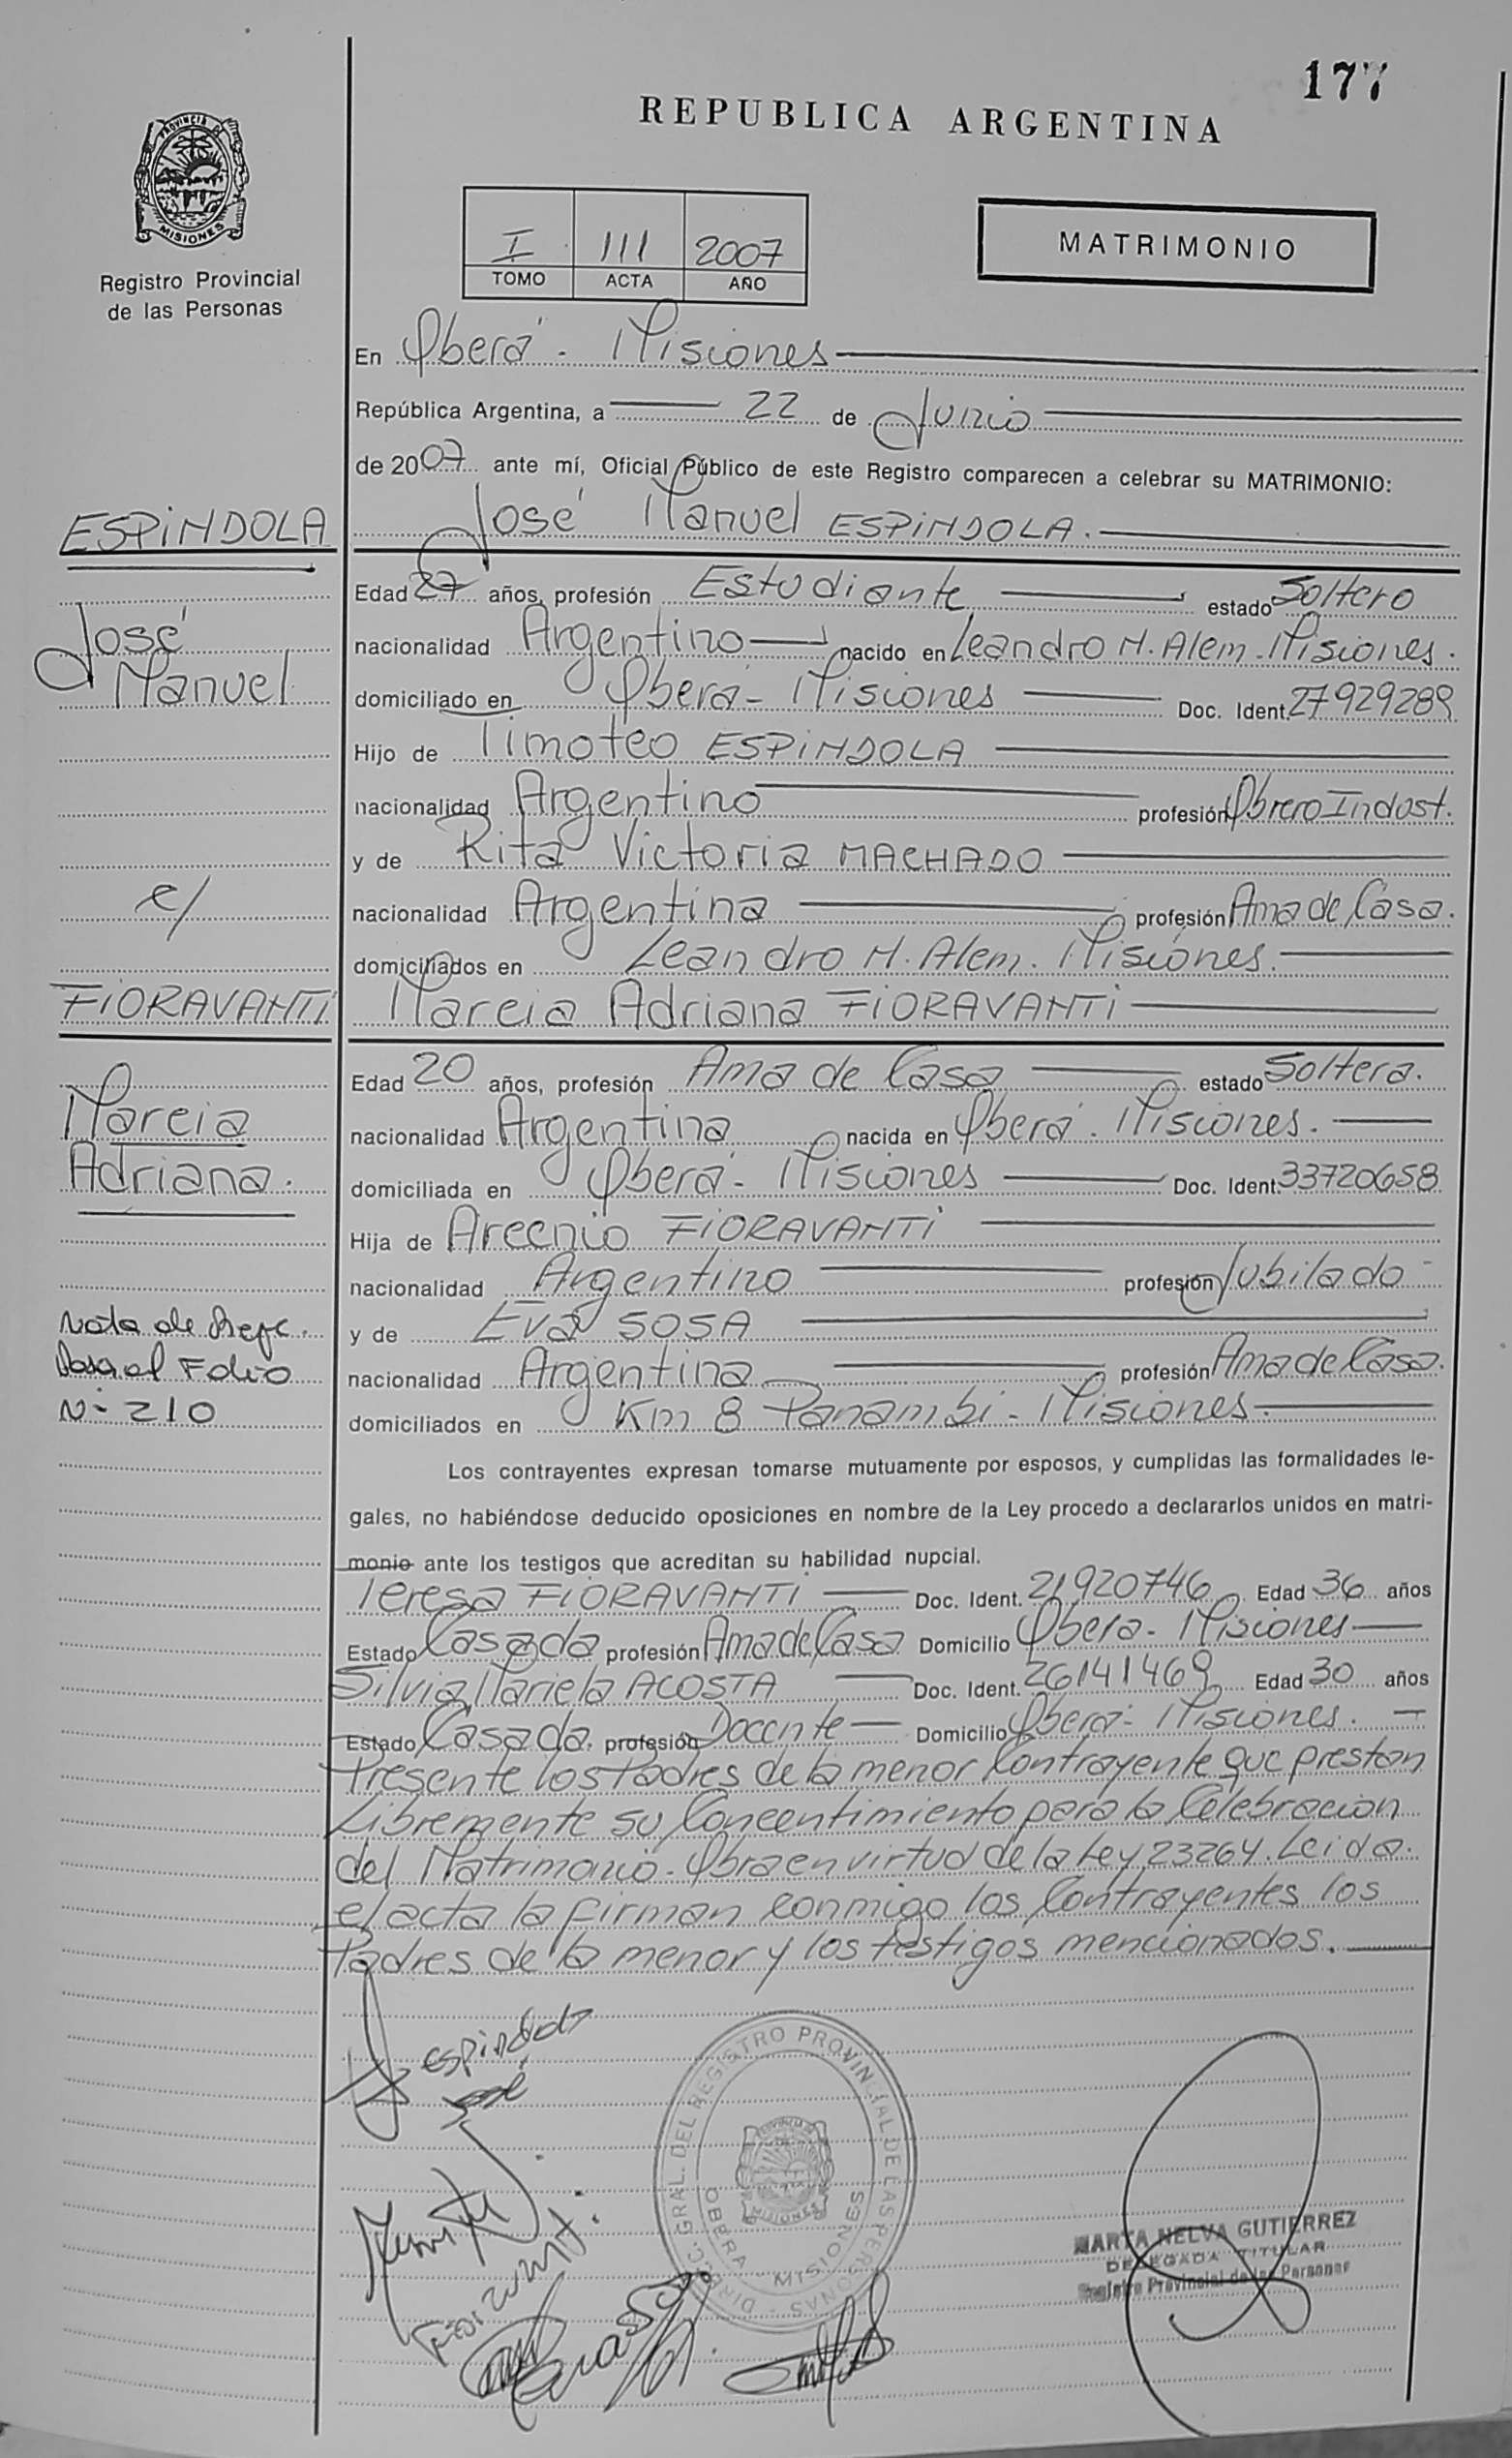 177
REPUBLICA ARGENTINA
PROVINCIA DE
MISIONES
Registro Provincial
de las Personas
I 111 2007
TOMO ACTA AÑO
MATRIMONIO
En Oberá - Misiones
República Argentina, a 22 de Junio
de 2007 ante mí, Oficial Público de este Registro comparecen a celebrar su MATRIMONIO:
ESPINDOLA José Manuel ESPINDOLA.
Edad 27 años, profesión Estudiante estado Soltero
José nacionalidad Argentino nacido en Leandro N. Alem - Misiones.
Manuel domiciliado en Oberá - Misiones Doc. Ident. 27929289
Hijo de Timoteo ESPINDOLA
nacionalidad Argentino profesión Obrero Indust.
y de Rita Victoria MACHADO
c/ nacionalidad Argentina profesión Ama de Casa.
domiciliados en Leandro N. Alem. Misiones.
FIORAVANTI Marcia Adriana FIORAVANTI
Edad 20 años, profesión Ama de Casa estado Soltera.
Marcia nacionalidad Argentina nacida en Oberá. Misiones.
Adriana. domiciliada en Oberá - Misiones Doc. Ident. 33720658
Hija de Arcenio FIORAVANTI
nacionalidad Argentino profesión Jubilado
Nota de Refe. y de Eva SOSA
Pasa al Folio nacionalidad Argentina profesión Ama de Casa.
N- 210 domiciliados en Km 8 Panambí - Misiones.
Los contrayentes expresan tomarse mutuamente por esposos, y cumplidas las formalidades le-
gales, no habiéndose deducido oposiciones en nombre de la Ley procedo a declararlos unidos en matri-
monio ante los testigos que acreditan su habilidad nupcial.
Teresa FIORAVANTI Doc. Ident. 21920746 Edad 36 años
Estado Casada profesión Ama de Casa Domicilio Oberá - Misiones
Silvia Mariela ACOSTA Doc. Ident. 26141469 Edad 30 años
Estado Casada. profesión Docente Domicilio Oberá - Misiones.
Presente los Padres de la menor Contrayente que prestan
Libremente su Concentimiento para la Celebracion
del Matrimonio. Obra en virtud de la Ley 23264. Leida
el acta la firman conmigo los Contrayentes los
Padres de la menor y los testigos mencionados.
Espindola
José
DIRECC. GRAL. DEL REGISTRO PROVINCIAL DE LAS PERSONAS
OBERA - MISIONES
PROVINCIA DE
MISIONES
MARTA NELVA GUTIERREZ
DELEGADA TITULAR
Registro Provincial de las Personas